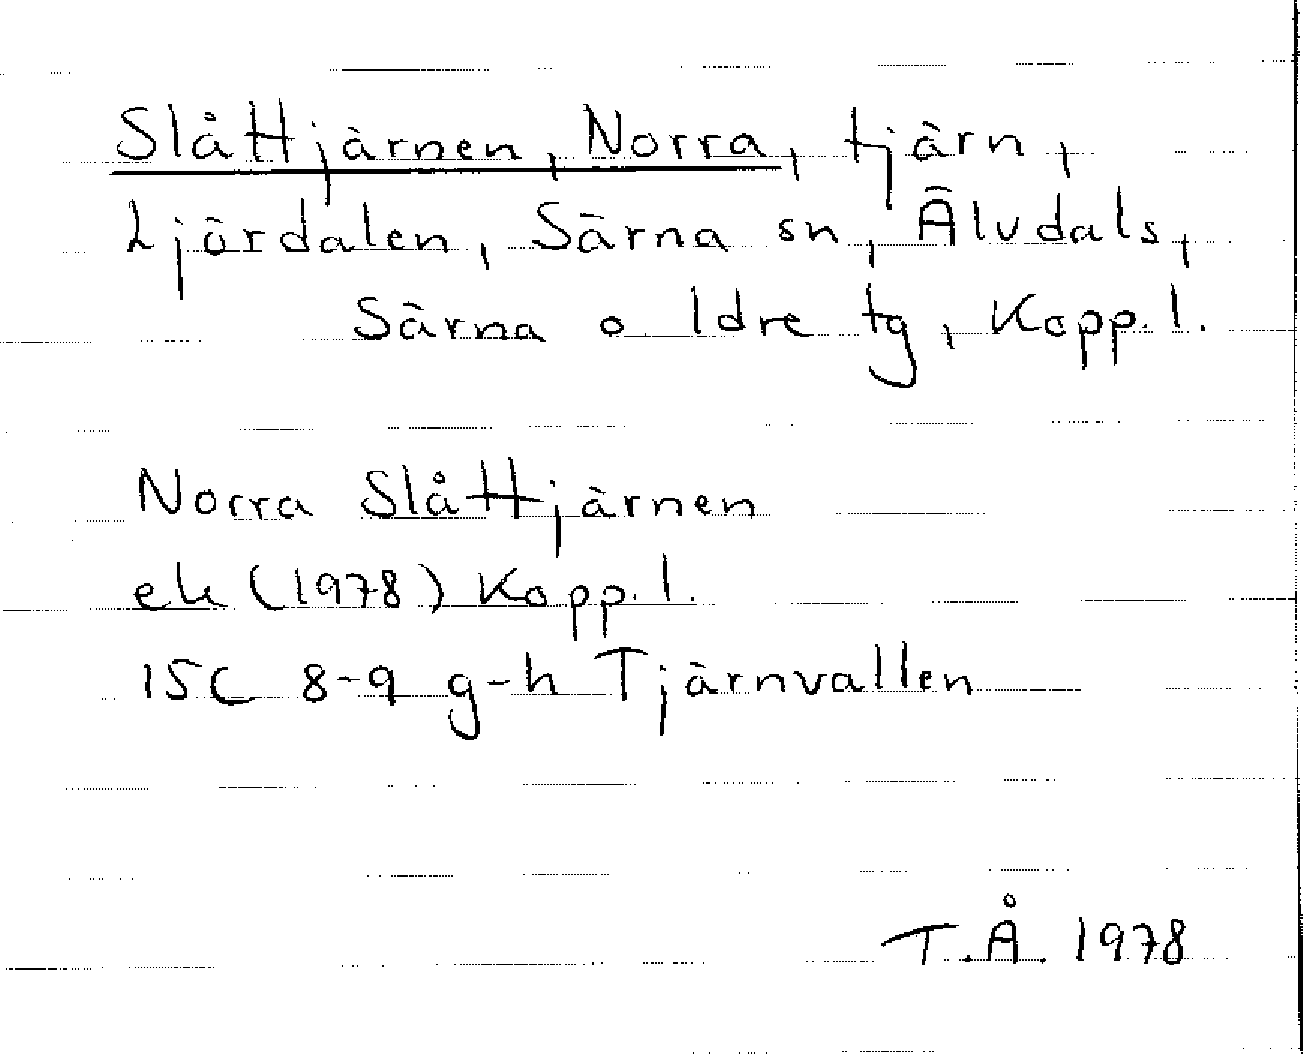 Slåttjärnen, Norra, tjärn,
Ljördalen, Särna sn, Älvdals,
Särna o Idre tg, Kopp.l.
Norra Slåttjärnen
ek (1978) Kopp.l.
15C 8-9 g-h Tjärnvallen
T.Å. 1978